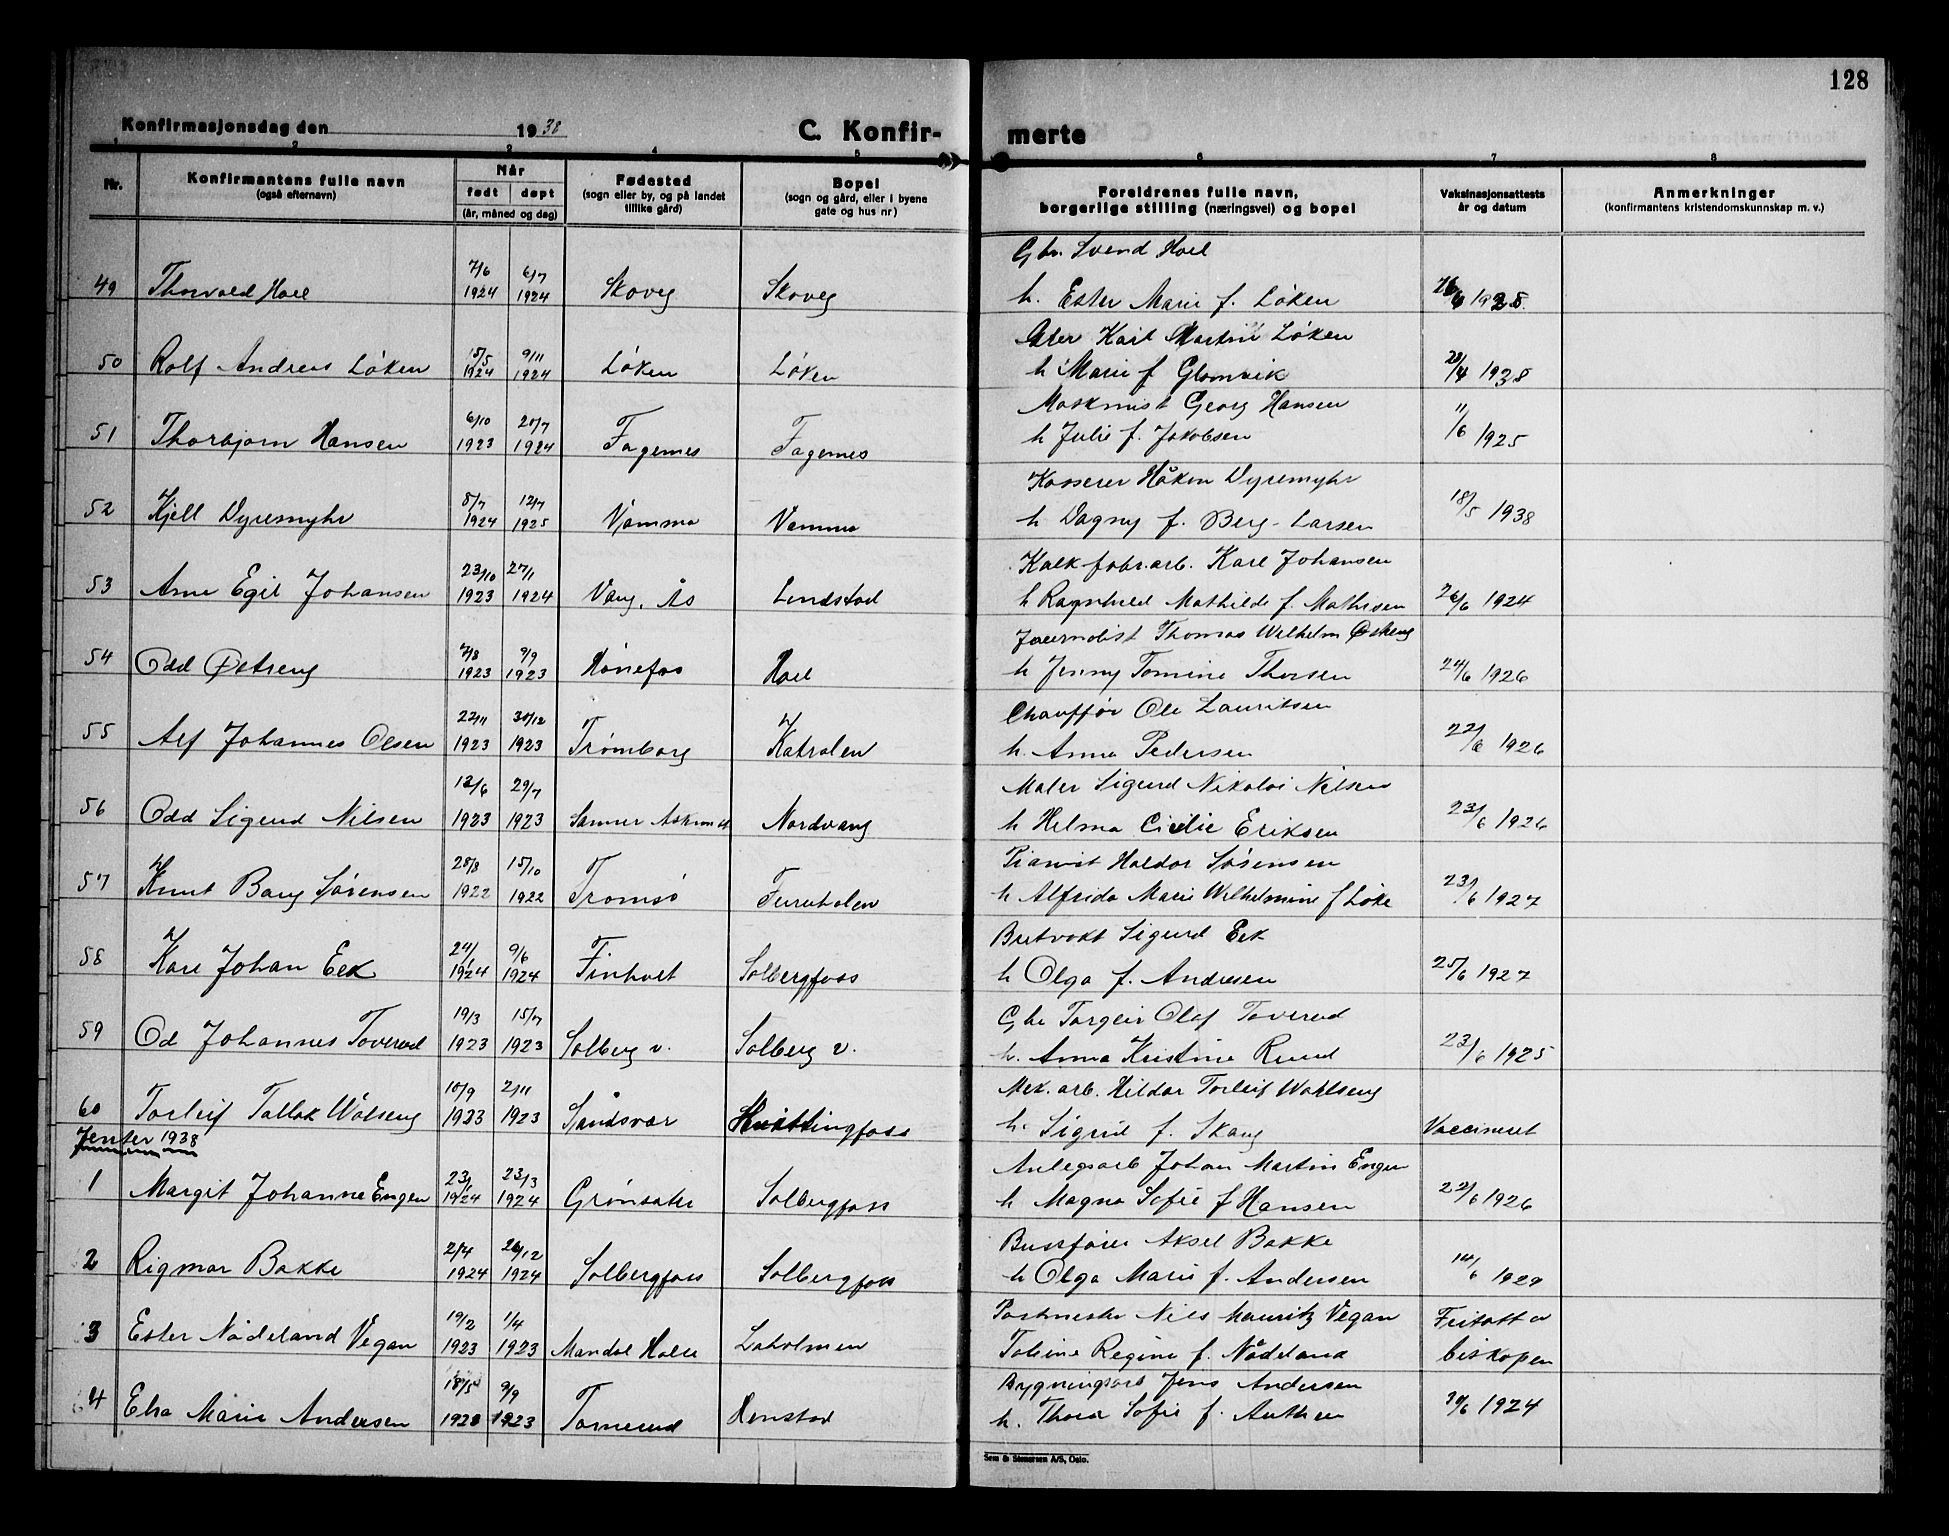 128
Konfirmasjonsdag den 19 38
C. Konfir-
merte
1 2 3 4 5 6 7 8
Nr.
Konfirmantens fulle navn
(også efternavn)
Når
født døpt
(år, måned og dag)
Fødested
(sogn eller by, og på landet
tillike gård)
Bopel
(sogn og gård, eller i byene
gate og hus nr)
Foreldrenes fulle navn,
borgerlige stilling (næringsvei) og bopel
Vaksinasjonsattests
år og datum
Anmerkninger
(konfirmantens kristendomskunnskap m. v.)
7/6 6/7 Gbr. Svend Hoel
49 Thorvald Hoel 1924 1924 Skoveg Skoveg h. Ester Marie f. Løken
15/5 9/11 Karl Martin Løken
50 Rolf Andreas Løken 1924 1924 Løken Løken h Marie f Glomvik 28/4 1938
6/10 20/7 Maskinist Georg Hansen 11/6
51 Thorbjørn Hansen 1923 1924 Fagernes Fagernes h Julie f. Jakobsen 1925
8/7 12/7 Kasserer Håkon Dyremyhr
52 Kjell Dyremyhr 1924 1925 Vamma Vamma h Dagny f. Berg-Larsen 18/5 1938
23/10 27/1 Kalkfabr.arb. Karl Johansen
53 Arne Egil Johansen 1923 1924 Vang, Ås Lindstad h Ragnhild Mathilde f. Mathisen 26/6 1924
7/8 9/9 Journalist Thomas Wilhelm Østreng
54 Odd Østreng 1923 1923 Hønefos Hoel h Jenny Tomine Thorsen 24/6 1926
22/11 30/12 Chauffør Ole Lauritsen
55 Alf Johannes Olsen 1923 1923 Trømborg Katralen h. Anna Pedersen 22/6 1926
13/6 29/7 Maler Sigurd Nikolai Nilsen
56 Odd Sigurd Nilsen 1923 1923 Sanner Askim Nordvang h Helma Cicilie Eriksen 23/6 1926
28/8 15/10 Pianist Haldor Sørensen
57 Knut Bang Sørensen 1922 1922 Tromsø Furuholen h Alfrida Marie Wilhelmine f Løke 23/6 1927
24/1 9/6 Brutvakt Sigurd Eek
58 Kare Johan Eek 1924 1924 Finholt Solbergfoss h Olga f. Andresen 25/6 1927
19/3 15/7 Gbr Torgeir Olaf Toverud
59 Od Johannes Toverud 1923 1923 Solberg v. Solberg v. h. Anna Kristine Ruud 23/6 1925
10/9 2/11 Mek. arb. Hildar Torleif Wahlseng
60 Torleif Tallak Wålseng 1923 1923 Sandsvær Hvittingfoss h. Sigrid f. Skaug Vaccineret
Jenter 1938
23/1 23/3 Anlegsarb Johan Martin Engen
1 Margit Johanne Engen 1924 1924 Grønsater Solbergfoss h Magna Sofie f Hansen 22/6 1926
2/4 26/12 Bussfører Aksel Bakke
2 Rigmor Bakke 1924 1924 Solbergfoss Solbergfoss h Olga Marie f. Andersen 14/6 1929
19/2 1/4 Postmester Nils Mauritz Vegan Fritatt av
3 Ester Nødeland Vegan 1923 1923 Mandal Halse Laholmen Tobine Regine f. Nødeland biskopen
18/5 9/9 Bygningsarb Jens Andersen
4 Elsa Marie Andersen 1923 1923 Tomerud Henstad h. Thora Sofie f. 1924
Sem & Stenersen A/S, Oslo.